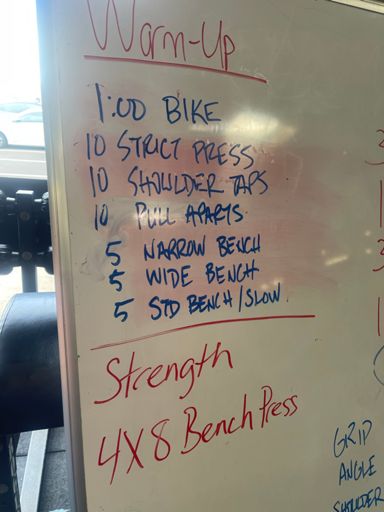 Warm-Up
1:00 BIKE
10 STRICT PRESS
10 SHOULDER TAPS
10 PULL APARTS
5 NARROW BENCH
5 WIDE BENCH
5 STD BENCH/SLOW
Strength
4X8 Bench Press
GRIP
ANGLE
SHOULDER